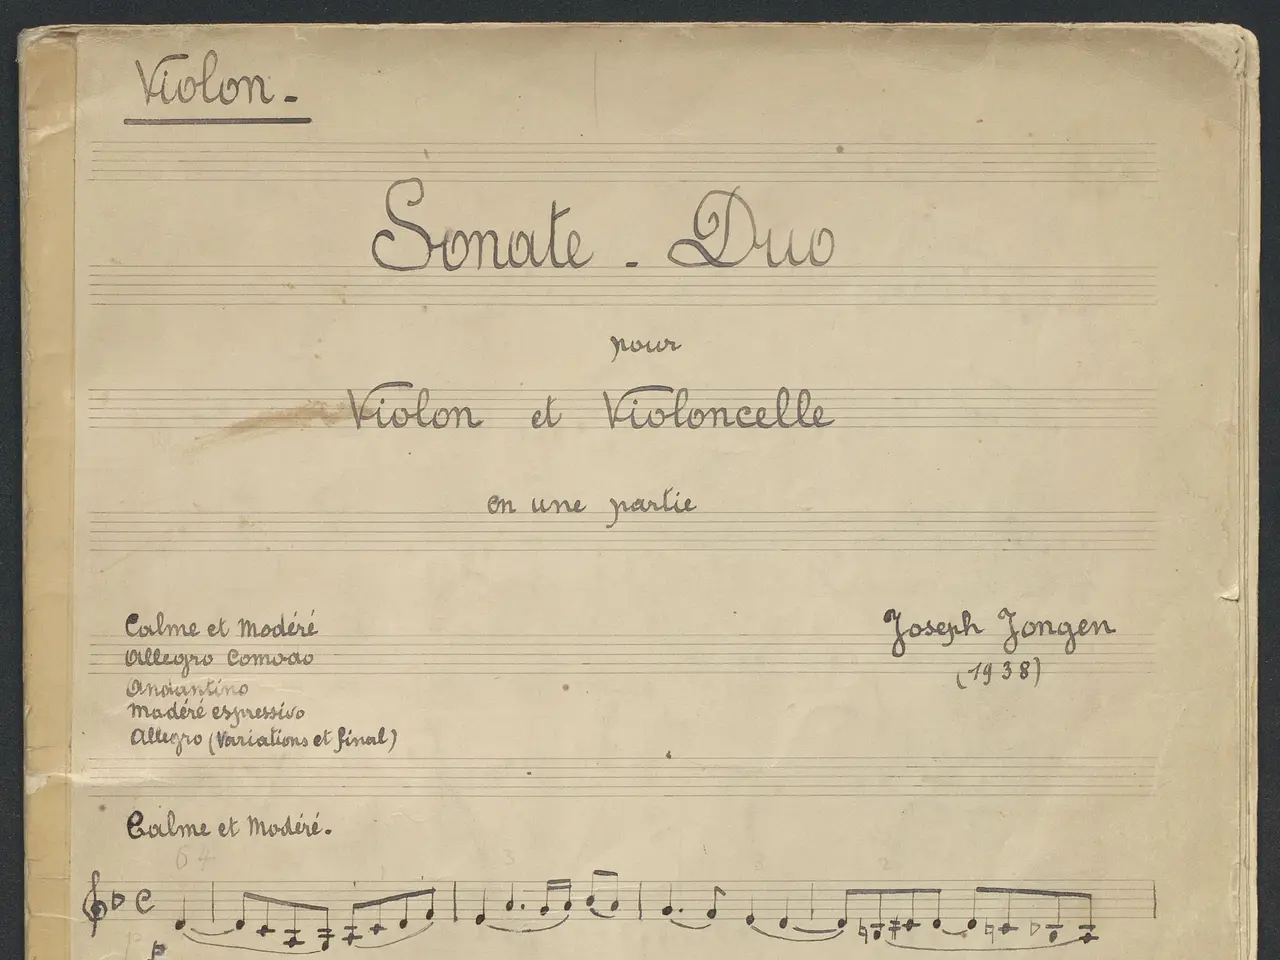 Violon.
Sonate - Duo
pour
Violon et Violoncelle
en une partie
Calme et Modéré
Allegro Comodo
Andantino
Modéré espressivo
Allegro (Variations et final)
Joseph Jongen
(1938)
Calme et Modéré.
64 3
p